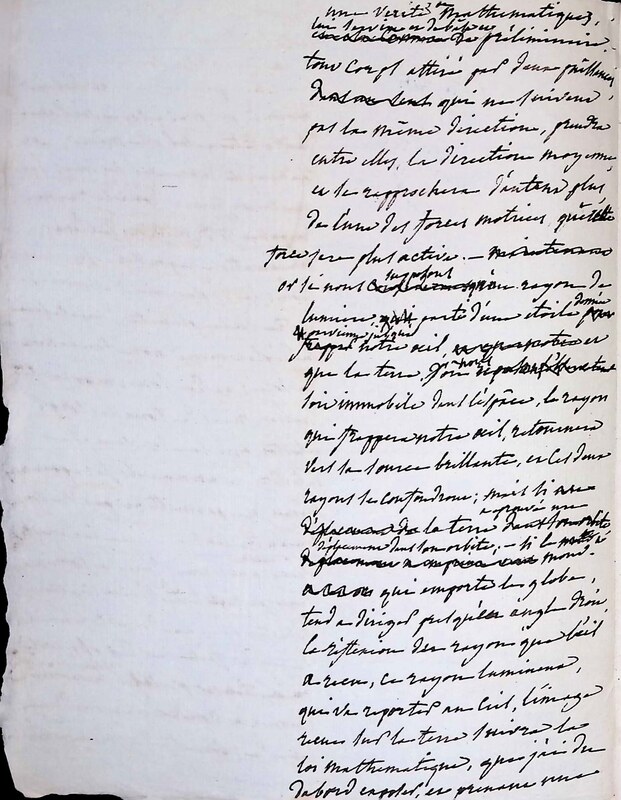 une verité Mathematique,
lui servira de préliminaire.
tout corps attiré par deux puissances
qui ne suivent
pas la même direction, prendra
entre elles, la direction moyenne,
et se rapprochera d'autant plus
de l'une des forces motrices, que cette
force sera plus active. — maintenant
or si nous supposons qu'un rayon de
lumiere parte d'une étoile donnée
parvienne jusqu'à notre œil, et
que la terre d'où nous
soit immobile dans l'espâce, le rayon
qui frappera notre œil, retournera
vers la source brillante, et ces deux
rayons se confondront; mais si
la terre a éprouvé un
déplacement dans son orbite, — si le
mouvement qui emporte le globe,
tend a diriger presqu'en angle droit,
la réflexion des rayons que l'œil
a reçu, ce rayon lumineux,
qui va reporter au Ciel, l'image
reçue sur la terre suivra la
loi mathematique, que j'ai du
d'abord exposer, et prenant une